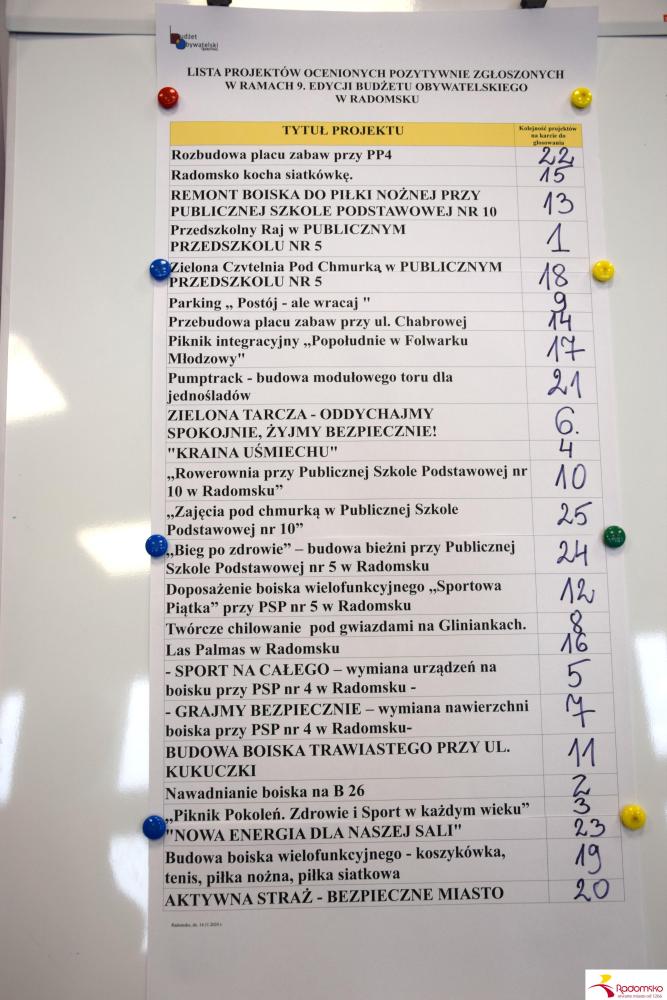 Budżet
Obywatelski
LISTA PROJEKTÓW OCENIONYCH POZYTYWNIE ZGŁOSZONYCH
W RAMACH 9. EDYCJI BUDŻETU OBYWATELSKIEGO
W RADOMSKU
TYTUŁ PROJEKTU
Kolejność projektów
na karcie do
głosowania
Rozbudowa placu zabaw przy PP4 22
Radomsko kocha siatkówkę. 15
REMONT BOISKA DO PIŁKI NOŻNEJ PRZY
PUBLICZNEJ SZKOLE PODSTAWOWEJ NR 10 13
Przedszkolny Raj w PUBLICZNYM
PRZEDSZKOLU NR 5 1
Zielona Czytelnia Pod Chmurką w PUBLICZNYM
PRZEDSZKOLU NR 5 18
Parking „ Postój - ale wracaj " 9
Przebudowa placu zabaw przy ul. Chabrowej 14
Piknik integracyjny „Popołudnie w Folwarku
Młodzowy" 17
Pumptrack - budowa modułowego toru dla
jednośladów 21
ZIELONA TARCZA - ODDYCHAJMY
SPOKOJNIE, ŻYJMY BEZPIECZNIE! 6.
"KRAINA UŚMIECHU" 4
„Rowerownia przy Publicznej Szkole Podstawowej nr
10 w Radomsku” 10
„Zajęcia pod chmurką w Publicznej Szkole
Podstawowej nr 10” 25
„Bieg po zdrowie” – budowa bieżni przy Publicznej
Szkole Podstawowej nr 5 w Radomsku 24
Doposażenie boiska wielofunkcyjnego „Sportowa
Piątka” przy PSP nr 5 w Radomsku 12
Twórcze chilowanie pod gwiazdami na Gliniankach. 8
Las Palmas w Radomsku 16
- SPORT NA CAŁEGO – wymiana urządzeń na
boisku przy PSP nr 4 w Radomsku - 5
- GRAJMY BEZPIECZNIE – wymiana nawierzchni
boiska przy PSP nr 4 w Radomsku- 7
BUDOWA BOISKA TRAWIASTEGO PRZY UL.
KUKUCZKI 11
Nawadnianie boiska na B 26 2
„Piknik Pokoleń. Zdrowie i Sport w każdym wieku” 3
"NOWA ENERGIA DLA NASZEJ SALI" 23
Budowa boiska wielofunkcyjnego - koszykówka,
tenis, piłka nożna, piłka siatkowa 19
AKTYWNA STRAŻ - BEZPIECZNE MIASTO 20
Radomsko, dn.
Radomsko